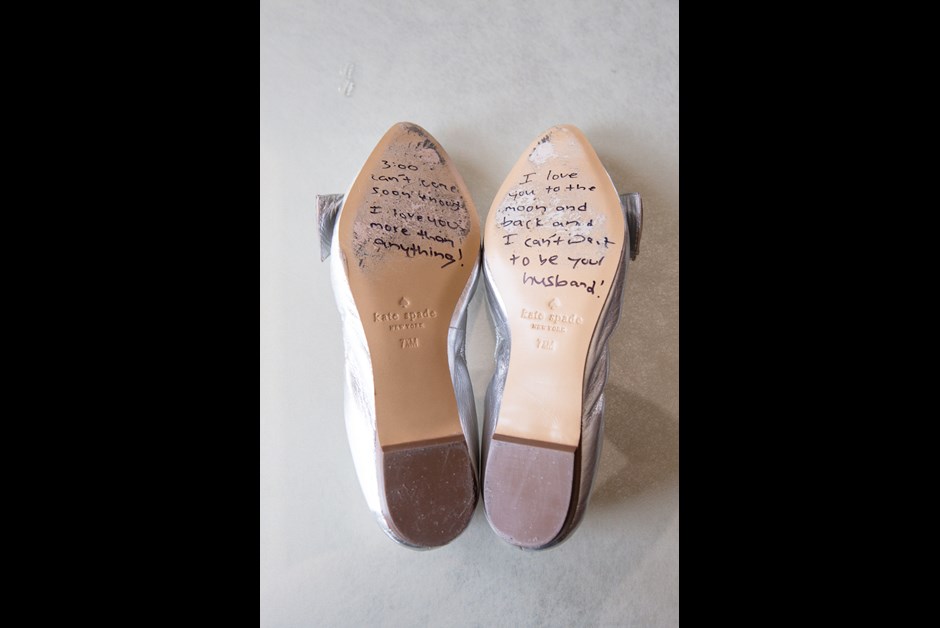 3:00
can't come
soon enough
I love you
more than
anything!
kate spade
NEW YORK
7M
I love
you to the
moon and
back and
I can't wait
to be your
husband!
kate spade
NEW YORK
7M